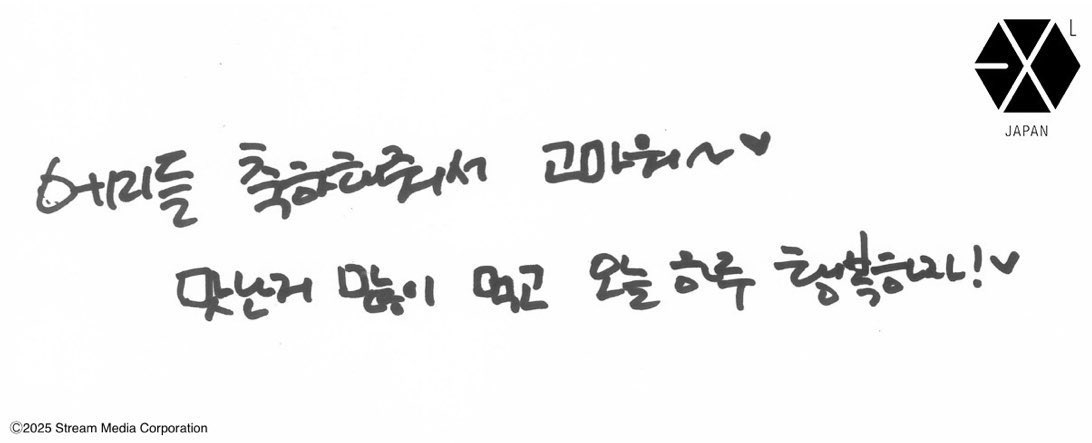 L
JAPAN
에리들 축하해줘서 고마워~♥
맛난거 많이 먹고 오늘 하루 행복하자!♥
©2025 Stream Media Corporation